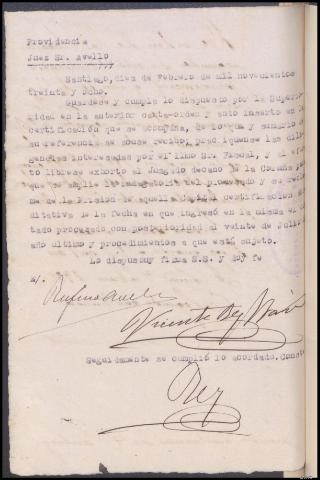 Providencia
Juez Sr. Avello
Santiago, diez de vebrero de mil novecientos
treinta y ocho.
Guardese y cumpla lo dispuesto por la Superio-
ridad en la anterior carta-orden y auto inserto en la
certificación que se acompaña, de lo que y sumario de
su referencia se acuse recibo; practiquense las dili-
gencias interesadas por el Ilmo Sr. Fiscal, y al efec-
to librese exhorto al Juzgado decano de la Coruña para
que se amplie la indagatoria del procesado y se
de la Prision de aquella Capital certificacion
ditativa de la fecha en que ingresó en la misma el
tado procesado con posterioridad al veinte de Julio
año ultimo y procedimientos a que está sujeto.
Lo dispuso y firma S.S. y doy fe
Seguidamente se cumplió lo acordado. Conste
Rey